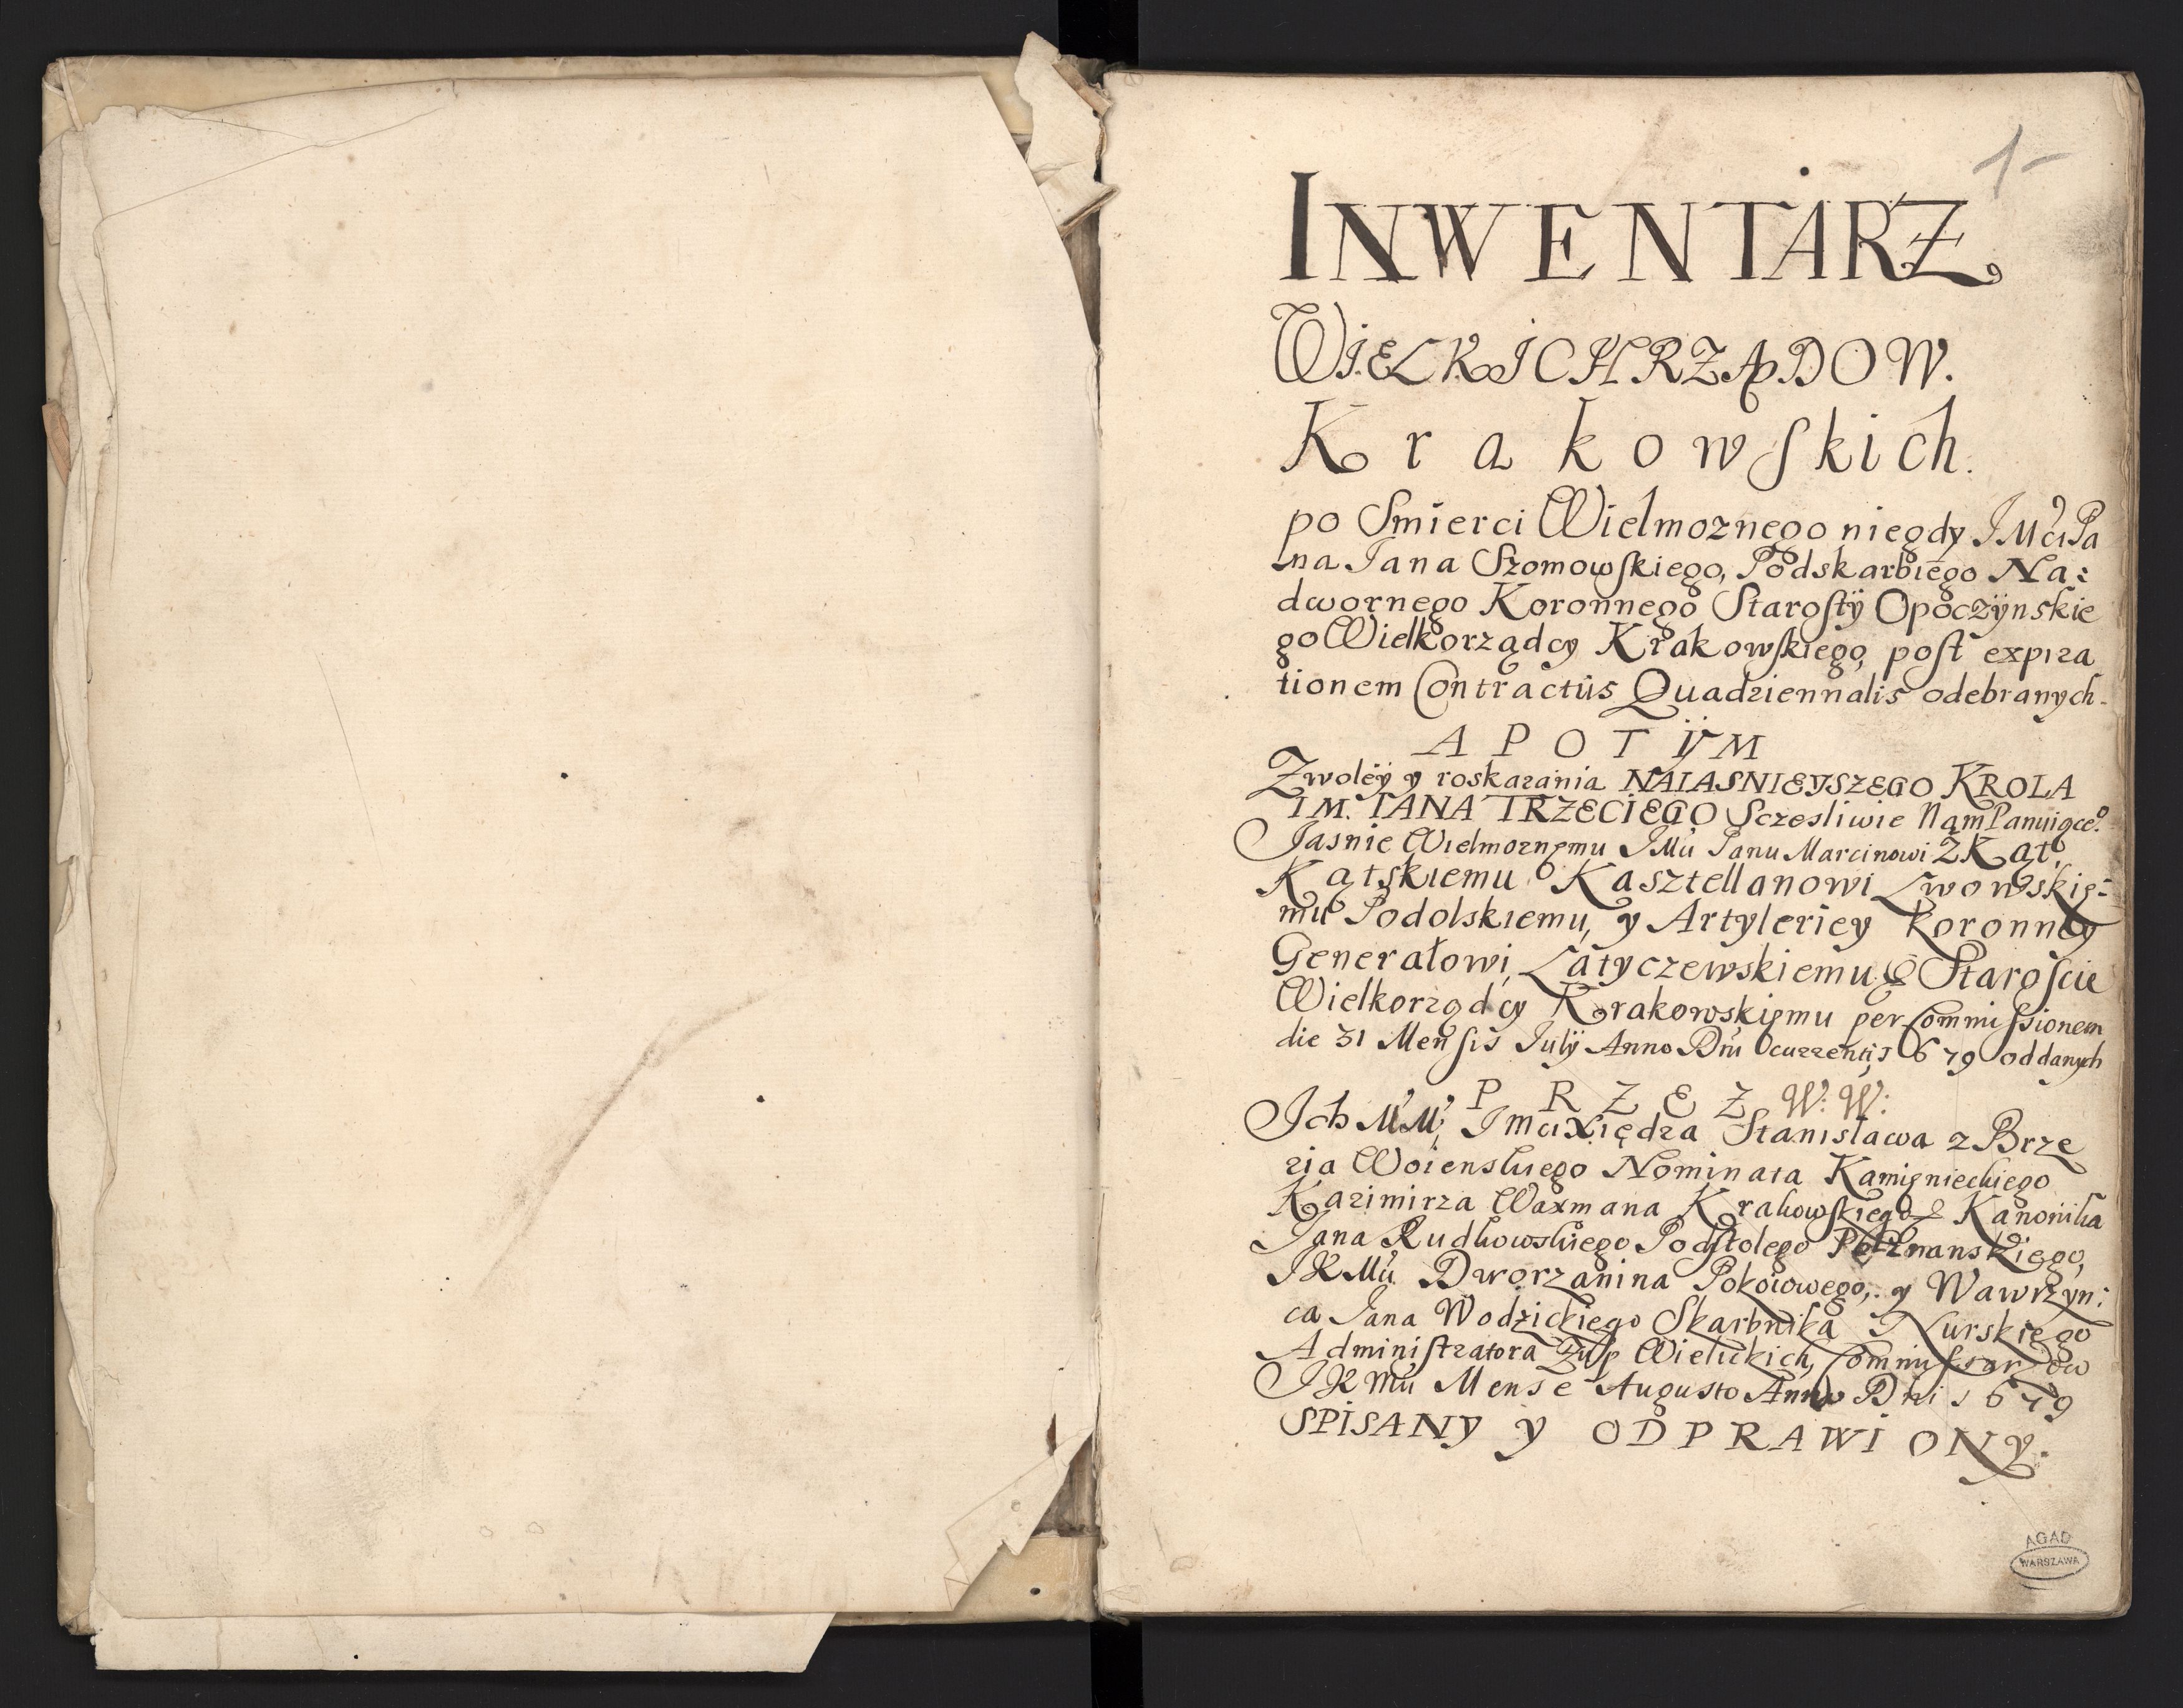 1-
INWENTARZ
WIELKICH RZĄDOW.
Krakowſkich.
po Smierci Wielmoznego niegdy JMci Pa
na Jana Szomowſkiego, Podskarbiego Na:
dwornego Koronnego Staroſty Opoczÿnskie
go Wielkorządcy Krakowſkiego, poſt expira
tionem Contractûs Quadriennalis odebranych.
A POTYM
Z woley y roskazania NAIASNIEYSZEGO KROLA
IM. IANA TRZECIEGO Sczesliwie Nam Panuiąceo.
Jasnie Wielmoznemu JMci Panu Marcinowi z Kąt,
Kątskiemu Kasztellanowi Lwowskie:
mu Podolskiemu, y Artyleriey Koronney
Generałowi, Latyczewskiemu & Staroſcie
Wielkorządcy Krakowskiemu per Commiſsionem
die 31 Menſis Julÿ Anno Dni currentis 1679 oddanych
PRZEZ W: W:
Ich MM, JmciXiędza Stanisława z Brze
zia Woienskiego Nominata Kamienieckiego
Kazimirza Waxmana Krakowſkiego & Kanonika
Jana Rudkowskiego Podſtolego Poznanskiego,
JKMci Dworzanina Pokoiowego, y Wawrzyn:
ca Jana Wodzickiego Skarbnika Nurskiego
Adminiſtratora Żup Wielickich, Commiſsarzow
JKMci Mense Augusto Anno Dni 1679
SPISANY y ODPRAWIONY.
AGAD
WARSZAWA